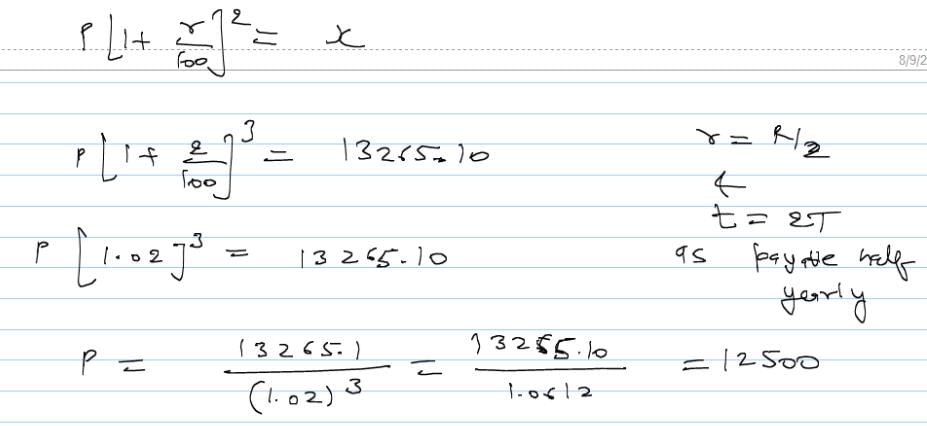 P[1+ r/100]^2 = x
8/9/2
P[1+ 2/100]^3 = 13265.10
r = R/2
←
t = 2T
P [1.02]^3 = 13265.10
as payable half
yearly
P = 13265.1/(1.02)^3 = 13265.10/1.0612 = 12500